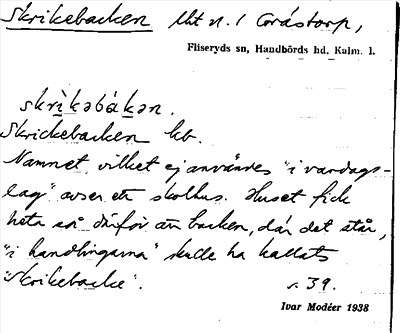 Skrikebacken lht n. / Coråstorp,
Fliseryds sn, Handbörds hd, Kalm. l.
skrìkəbákən.
Skrickebacken kb.
Namnet, vilket ej användes "i vardags-
lag" avser ett skolhus. Huset fick
heta så därför att backen, där det står,
"i handlingarna" skulle ha kallats
"Skrikebacke". s. 39.
Ivar Modéer 1938